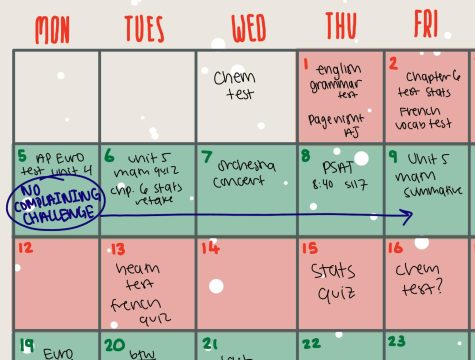 MON TUES WED THU FRI
Chem
test
1 english
grammar
test
Pagenight
AJ
2 Chapter 6
test stats
French
vocab test
5 AP Euro
test unit 4
NO
COMPLAINING
CHALLENGE
6 unit 5
math quiz
chp. 6 stats
retake
7 orchestra
concert
8 PSAT
8:40
9 Unit 5
math
summative
12
13
test
french
quiz
14
15
Stats
quiz
16
chem
test?
19 Euro
20 btw
21
22
23